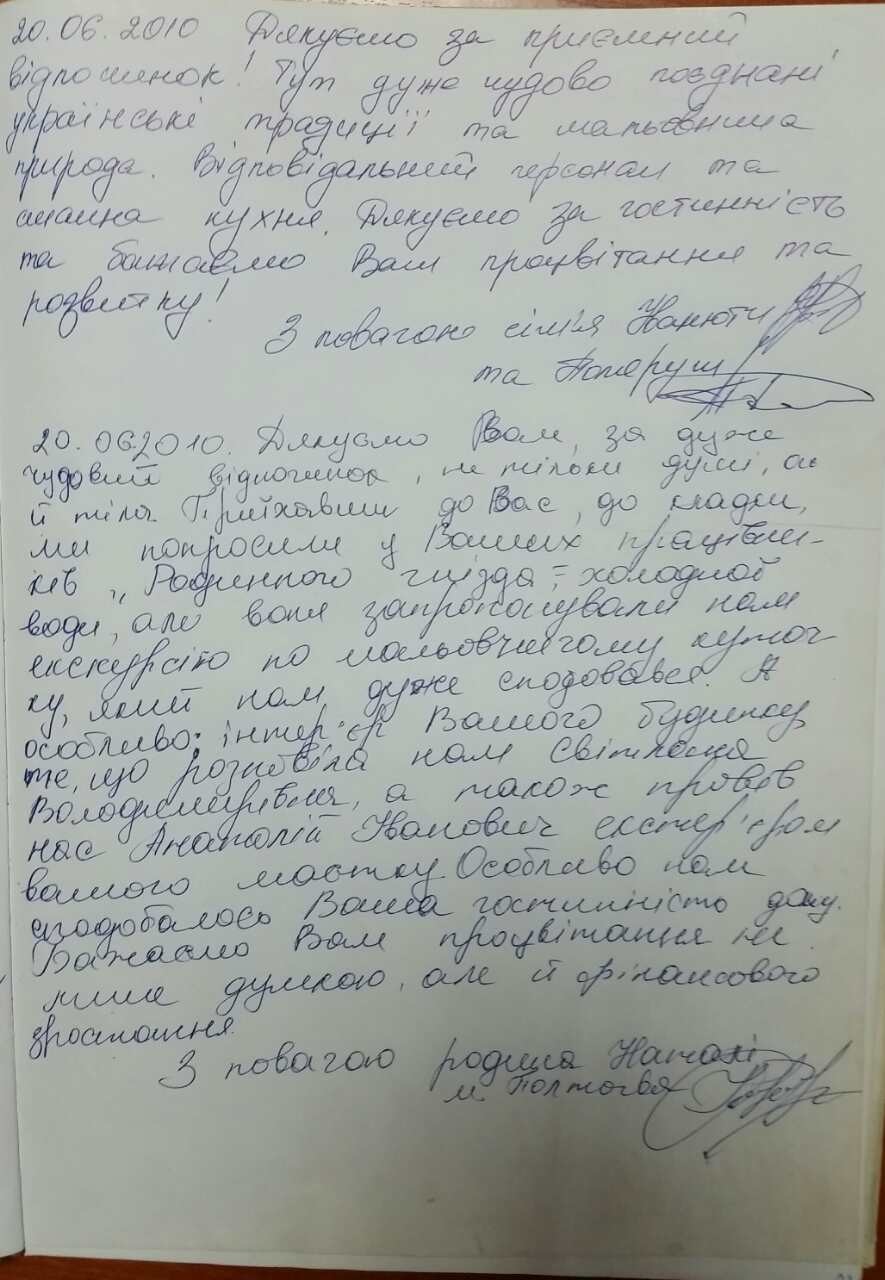 20.06.2010 Дякуємо за приємний
відпочинок! Тут дуже чудово поєднані
українські традиції та мальовнича
природа. Відповідальний персонал та
смачна кухня. Дякуємо за гостинність
та бажаємо Вам процвітання та
розвитку!
З повагою сім'я
та
20.06.2010. Дякуємо Вам, за дуже
чудовий відпочинок, не тільки душі, а
й тіла. Приїхавши до Вас, до
ми попросили у Ваших працівни-
ків „Родинного гнізда" - холодної
води, але вони запропонували нам
екскурсію по мальовничому куточ
ку, який нам дуже сподобався. А
особливо: інтер'єр Вашого будинку,
те, що розповіла нам Світлана
Володимирівна, а також провів
нас Анатолій Іванович екстер'єром
вашого маєтку. Особливо нам
сподобалось Ваша гостинність дому.
Бажаємо Вам процвітання не
лише думкою, але й фінансового
зростання.
З повагою родина
м. Полтава